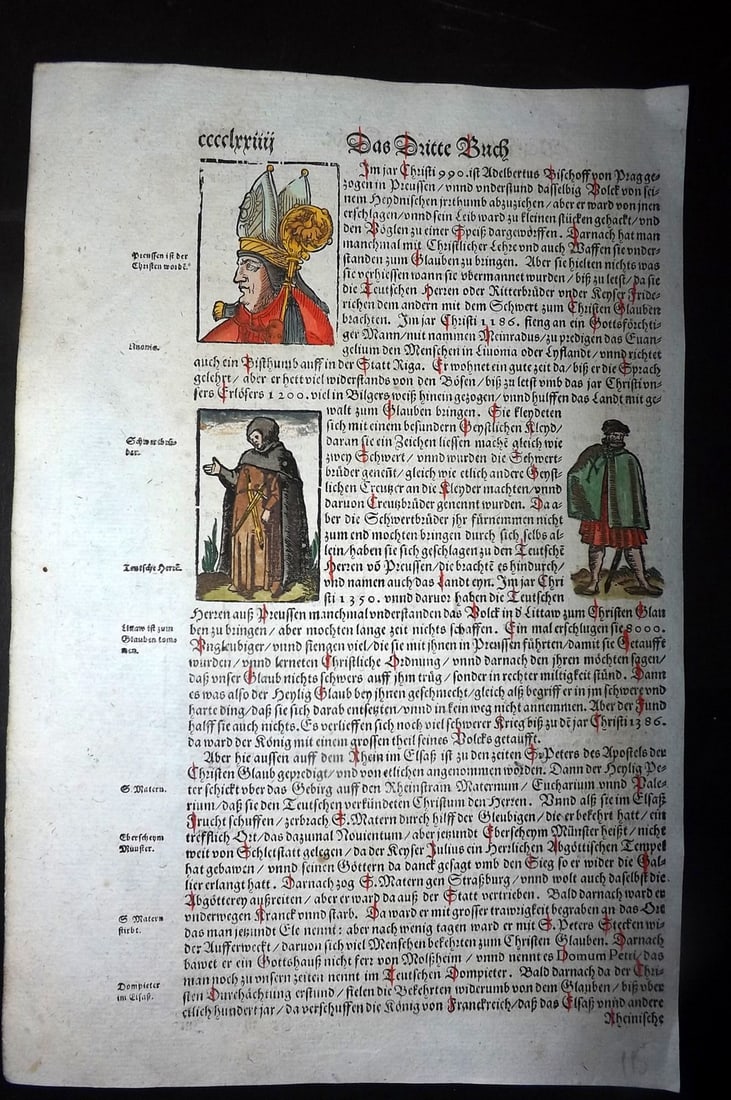 cccclxxiiij
Das Dritte Buch
Im jar Christi 990. ist Adelbertus Bischoff von Prag ge-
zogen in Preussen / vnnd vnderstund dasselbig Volck von sei-
nem Heydnischen jrrthumb abzuziehen / aber er ward von jnen
erschlagen / vnnd sein Leib ward zu kleinen stücken gehackt / vnd
den Vöglen zu einer Speiß dargeworffen. Darnach hat man
manchmal mit Christlicher Lehre vnd auch Waffen sie vnder-
standen zum Glauben zu bringen. Aber sie hielten nichts was
sie verhiessen wann sie vbermannet wurden / biß zu letst / da sie
die Teutschen Herren oder Ritterbrüder vnder Keyser Fride-
richen dem andern mit dem Schwert zum Christen Glauben
brachten. Im jar Christi 1186. fieng an ein Gottsförchti-
ger Mann / mit nammen Meinradus / zu predigen das Euan-
gelium den Menschen in Liuonia oder Lyflandt / vnnd richtet
auch ein Bisthumb auff in der Statt Riga. Er wohnet ein gute zeit da / biß er die Sprach
gelehrt / aber er hett viel widerstands von den Bösen / biß zu letst vmb das jar Christi vn-
sers Erlösers 1200. viel in Bilgers weiß hinein gezogen / vnnd hulffen das Landt mit ge-
walt zum Glauben bringen. Sie kleydeten
sich mit einem besundern Geystlichen Kleyd /
daran sie ein Zeichen liessen machẽ gleich wie
zwey Schwert / vnnd wurden die Schwert-
brüder geneñt / gleich wie etlich andere Geyst-
lichen Creutzer an die Kleyder machten / vnnd
daruon Creutzbrüder genennt wurden. Da a-
ber die Schwertbrüder jhr fürnemmen nicht
zum end mochten bringen durch sich selbs al-
lein / haben sie sich geschlagen zu den Teutschẽ
Herren võ Preussen / die brachtẽ es hindurch /
vnd namen auch das Landt eyn. Im jar Chri
sti 1350. vnnd daruor haben die Teutschen
Herren auß Preussen manchmal vnderstanden das Volck in d Littaw zum Christen Glau
ben zu bringen / aber mochten lange zeit nichts schaffen. Ein mal erschlugen sie 8000.
Vngleubiger / vnnd fiengen viel / die sie mit jhnen in Preussen führten / damit sie Getaufft
wurden / vnnd lerneten Christliche Ordnung / vnnd darnach den jhren möchten sagen /
daß vnser Glaub nichts schwers auff jhm trüg / sonder in rechter miltigkeit stünd. Dann
es was also der Heylig Glaub bey jhren geschmecht / gleich alß begriff er in jm schwere vnd
harte ding / daß sie sich darab entsetzten / vnnd in kein weg nicht annemmen. Aber der Fund
halff sie auch nichts. Es verlieffen sich noch viel schwerer Krieg biß zu dẽ jar Christi 1386.
da ward der König mit einem grossen theil seines Volcks getaufft.
Aber hie aussen auff dem Rhein im Elsaß ist zu den zeiten S. Peters des Apostels der
Christen Glaub geprediget / vnnd von etlichen angenommen worden. Dann der Heylig Pe-
ter schickt vber das Gebirg auff den Rheinstram Maternum / Eucharium vnnd Vale-
rium / daß sie den Teutschen verkündeten Christum den Herren. Vnnd alß sie im Elsaß
Frucht schuffen / zerbrach S. Matern durch hilff der Gleubigen / die er bekehrt hatt / ein
trefflich Ort / das dazumal Nouientum / aber jetzundt Eberscheym Münster heißt / nicht
weit von Schletstatt gelegen / da der Keyser Julius ein Herrlichen Abgöttischen Tempel
hat gebawen / vnnd seinen Göttern da danck gesagt vmb den Sieg so er wider die Gal-
lier erlangt hatt. Darnach zog S. Matern gen Straßburg / vnnd wolt auch daselbst die
Abgötterey außreiten / aber er ward da auß der Statt vertrieben. Bald darnach ward er
vnderwegen Kranck vnnd starb. Da ward er mit grosser trawrigkeit begraben an das Ort
das man jetzundt Ele nennt: aber nach wenig tagen ward er mit S. Peters Stecken wi-
der Aufferweckt / daruon sich viel Menschen bekehrten zum Christen Glauben. Darnach
bawet er ein Gottshauß nicht ferr von Molßheim / vnnd nennt es Domum Petri / das
man noch zu vnsern zeiten nennt im Teutschen Dompieter. Bald darnach da der Chri-
sten Durchächtung erstund / fielen die Bekehrten widerumb von dem Glauben / biß vber
etlich hundert jar / da verschuffen die König von Franckreich / daß das Elsaß vnnd andere
Rheinische
Preussen ist der
Christen wordẽ.
Liuonia.
Schwertbrü-
der.
Teutsche Herrẽ.
Littaw ist zum
Glauben kom-
men.
S. Matern.
Eberscheym
Münster.
S. Matern
stirbt.
Dompieter
im Elsaß.